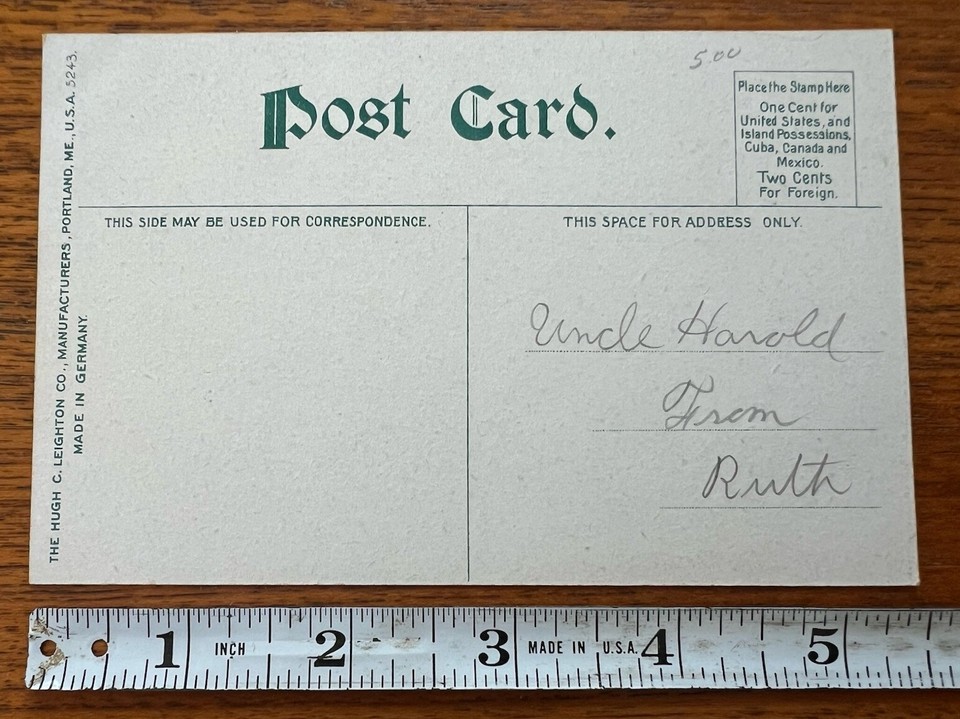 5.00
Post Card.
Place the Stamp Here
One Cent for
United States, and
Island Possessions,
Cuba, Canada and
Mexico.
Two Cents
For Foreign.
THIS SIDE MAY BE USED FOR CORRESPONDENCE.
THIS SPACE FOR ADDRESS ONLY.
Uncle Harold
From
Ruth
THE HUGH C. LEIGHTON CO., MANUFACTURERS, PORTLAND, ME., U.S.A. 5243.
MADE IN GERMANY.
1 INCH 2 3 MADE IN U.S.A. 4 5